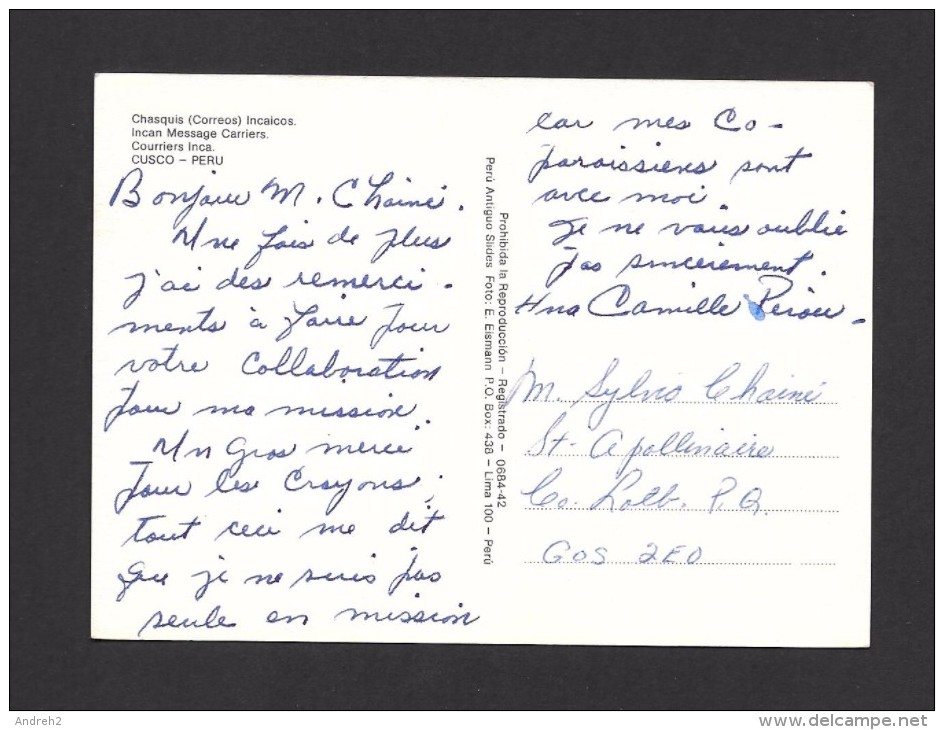 Chasquis (Correos) Incaicos.
Incan Message Carriers.
Courriers Inca.
CUSCO – PERU
Bonjour M. Chainé.
Une fois de plus
j'ai des remerci-
ments à faire pour
votre collaboration
pour ma mission.
Un gros merci
pour les crayons;
tout ceci me dit
que je ne suis pas
seule en mission
car mes co-
paroissiens sont
avec moi.
Je ne vous oublie
pas sincèrement.
Camille Pérou.
Prohibida la Reproducción – Registrado – 0684-42
Perú Antiguo Slides Foto: E. Eismann P.O. Box: 438 – Lima 100 – Perú
M. Sylvio Chainé
St-Apollinaire
Co. Lotb. P.Q.
G0S 2E0
Andreh2
www.delcampe.net